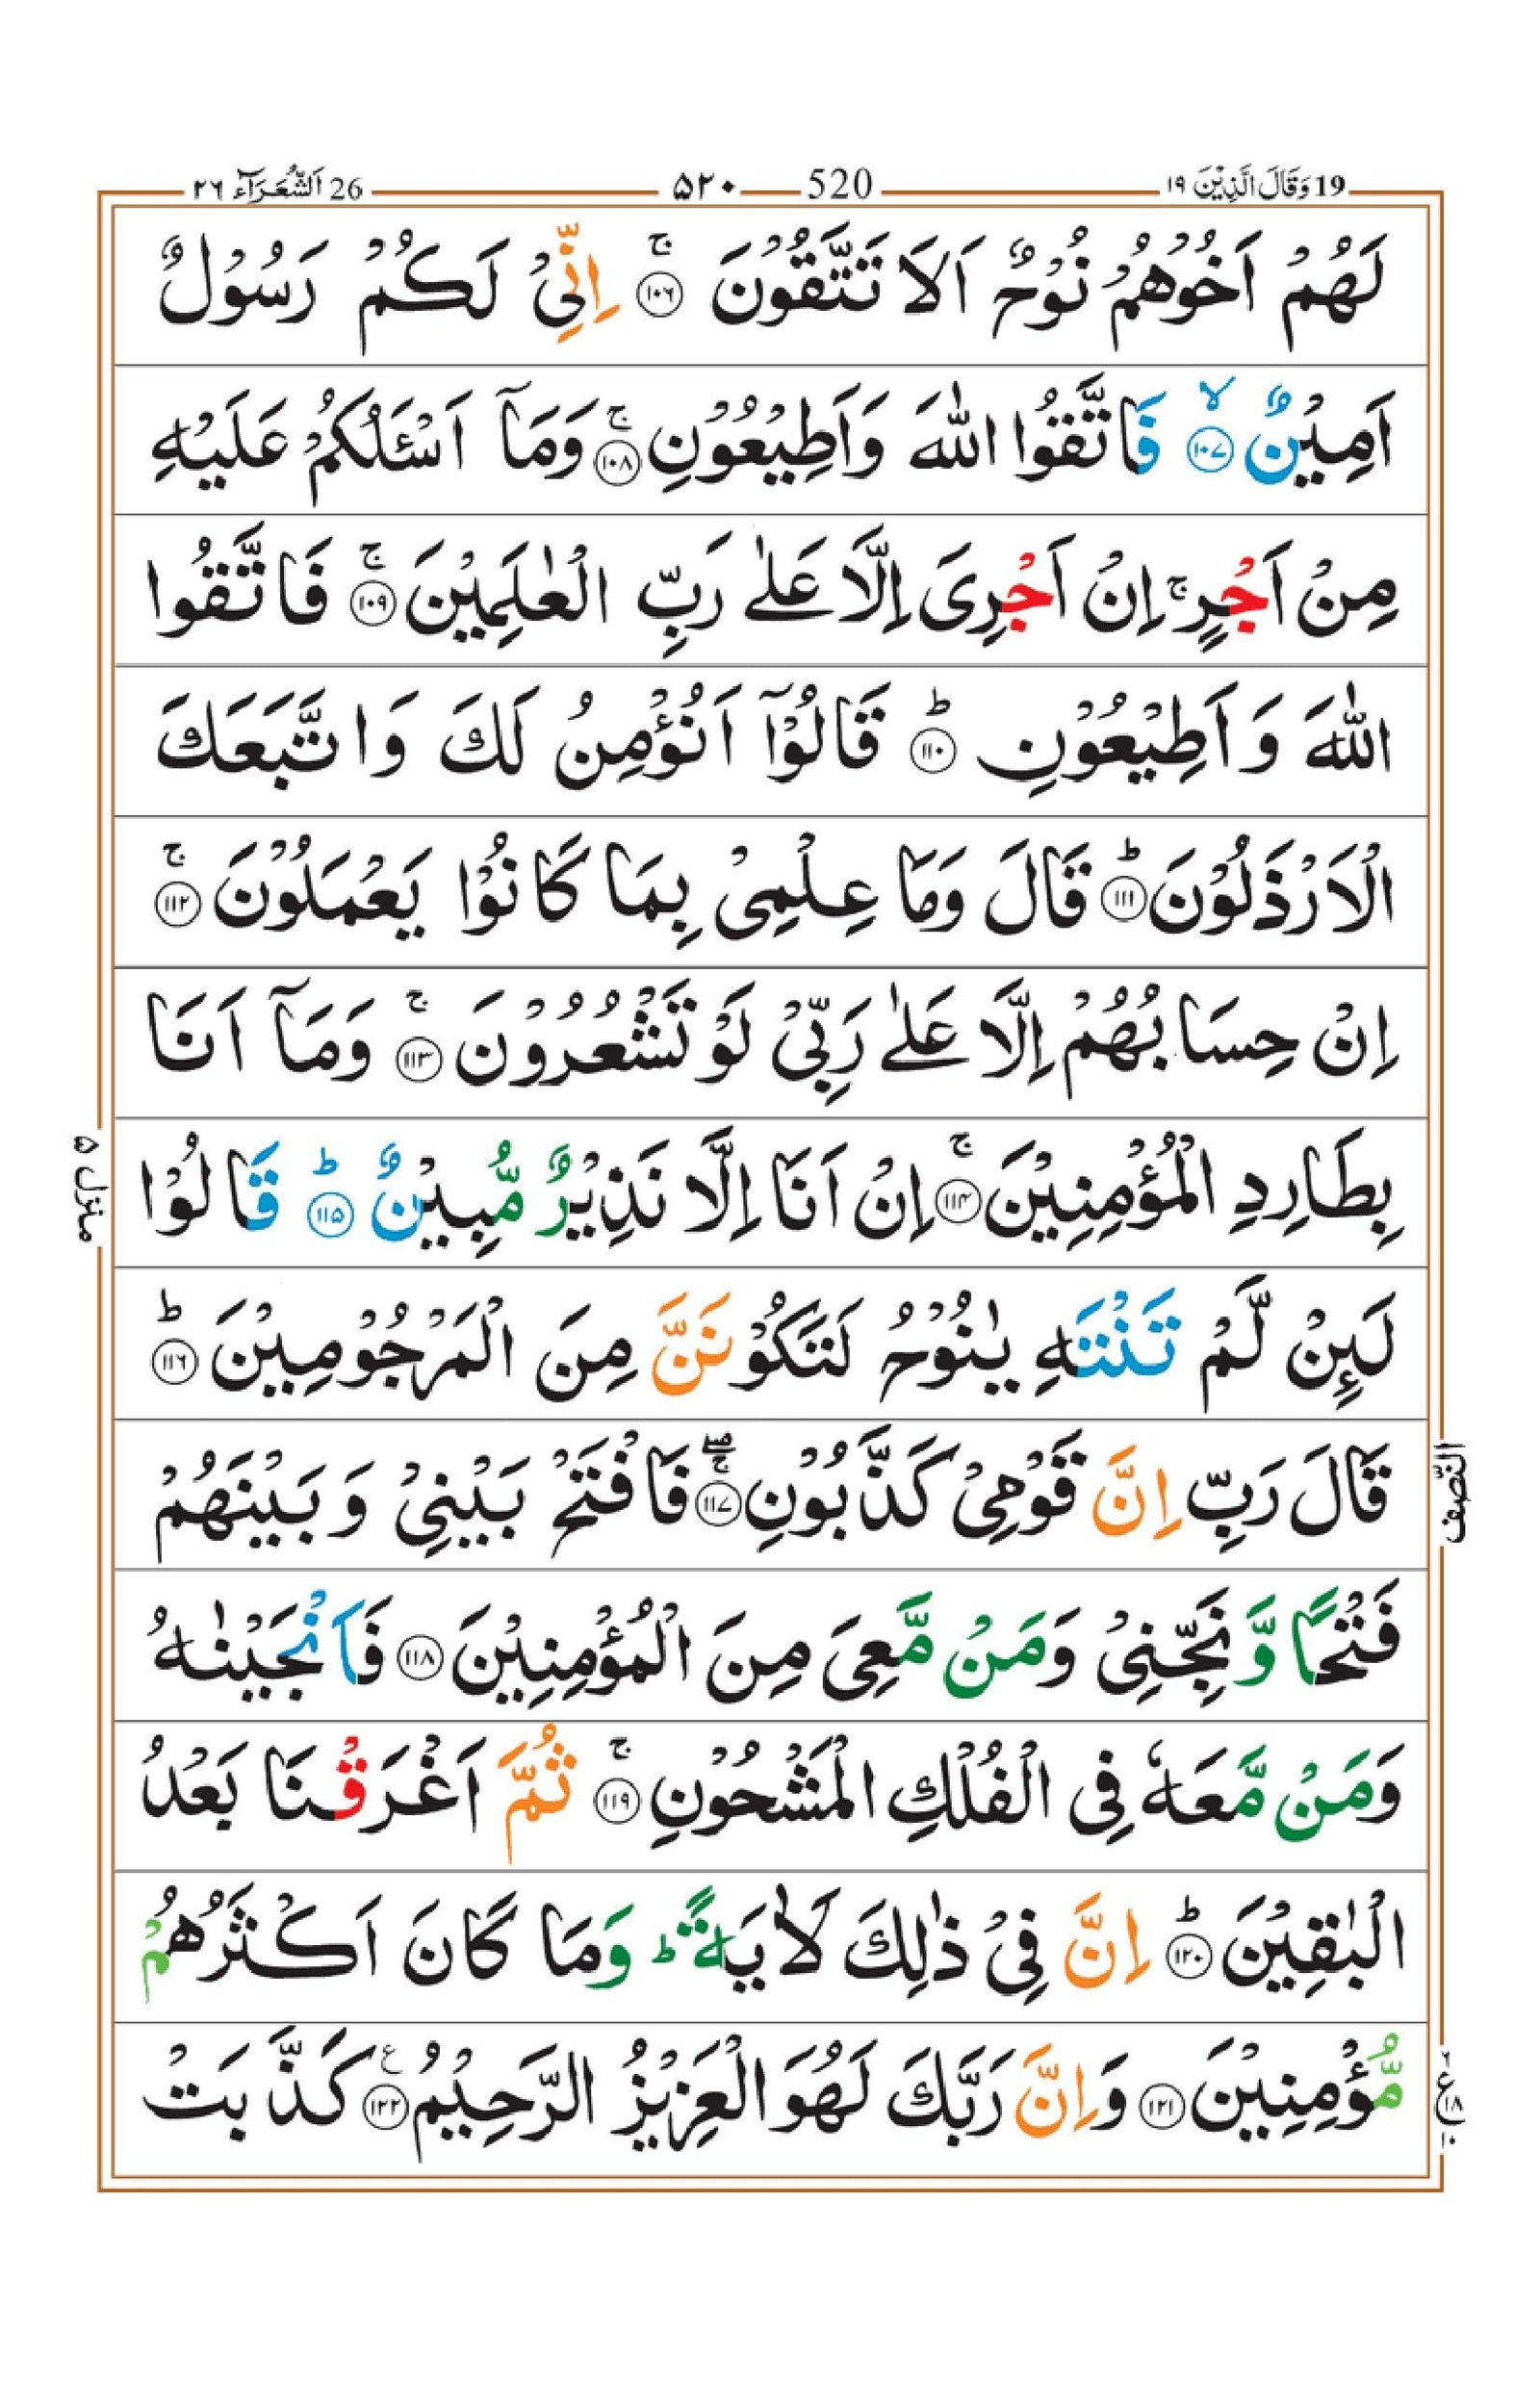 19 وَقَالَ الَّذِيْنَ ١٩ 520 ۵۲۰ 26 اَلشُّعَرَآء ٢٦
لَهُمْ اَخُوْهُمْ نُوْحٌ اَلَا تَتَّقُوْنَ ۚ‏﴿۱۰۶﴾ اِنِّىْ لَكُمْ رَسُوْلٌ
اَمِيْنٌ ۙ‏﴿۱۰۷﴾ فَاتَّقُوا اللّٰهَ وَاَطِيْعُوْنِ ۚ‏﴿۱۰۸﴾ وَمَاۤ اَسْـَٔـلُكُمْ عَلَيْهِ
مِنْ اَجْرٍ ۚ اِنْ اَجْرِىَ اِلَّا عَلٰى رَبِّ الْعٰلَمِيْنَ ۚ‏﴿۱۰۹﴾ فَاتَّقُوا
اللّٰهَ وَاَطِيْعُوْنِ ؕ‏﴿۱۱۰﴾ قَالُوْۤا اَنُؤْمِنُ لَكَ وَاتَّبَعَكَ
الْاَرْذَلُوْنَ ؕ‏﴿۱۱۱﴾ قَالَ وَمَا عِلْمِىْ بِمَا كَانُوْا يَعْمَلُوْنَ ۚ‏﴿۱۱۲﴾
اِنْ حِسَابُهُمْ اِلَّا عَلٰى رَبِّىْ لَوْ تَشْعُرُوْنَ ۚ‏﴿۱۱۳﴾ وَمَاۤ اَنَا
بِطَارِدِ الْمُؤْمِنِيْنَ ۚ‏﴿۱۱۴﴾ اِنْ اَنَا اِلَّا نَذِيْرٌ مُّبِيْنٌ ؕ‏﴿۱۱۵﴾ قَالُوْا
لَئِنْ لَّمْ تَنْتَهِ يٰنُوْحُ لَتَكُوْنَنَّ مِنَ الْمَرْجُوْمِيْنَ ؕ‏﴿۱۱۶﴾
قَالَ رَبِّ اِنَّ قَوْمِىْ كَذَّبُوْنِ ۖۚ‏﴿۱۱۷﴾ فَافْتَحْ بَيْنِىْ وَبَيْنَهُمْ
فَتْحًا وَّنَجِّنِىْ وَمَنْ مَّعِىَ مِنَ الْمُؤْمِنِيْنَ‏﴿۱۱۸﴾ فَاَنْجَيْنٰهُ
وَمَنْ مَّعَهٗ فِى الْفُلْكِ الْمَشْحُوْنِ ۚ‏﴿۱۱۹﴾ ثُمَّ اَغْرَقْنَا بَعْدُ
الْبٰقِيْنَ ؕ‏﴿۱۲۰﴾ اِنَّ فِىْ ذٰلِكَ لَاٰيَةً ؕ وَمَا كَانَ اَكْثَرُهُمْ
مُّؤْمِنِيْنَ‏﴿۱۲۱﴾ وَاِنَّ رَبَّكَ لَهُوَ الْعَزِيْزُ الرَّحِيْمُ ࣖ‏﴿۱۲۲﴾ كَذَّبَتْ
منزل ۵
النّصف
٦ ع ١٨ ١٠